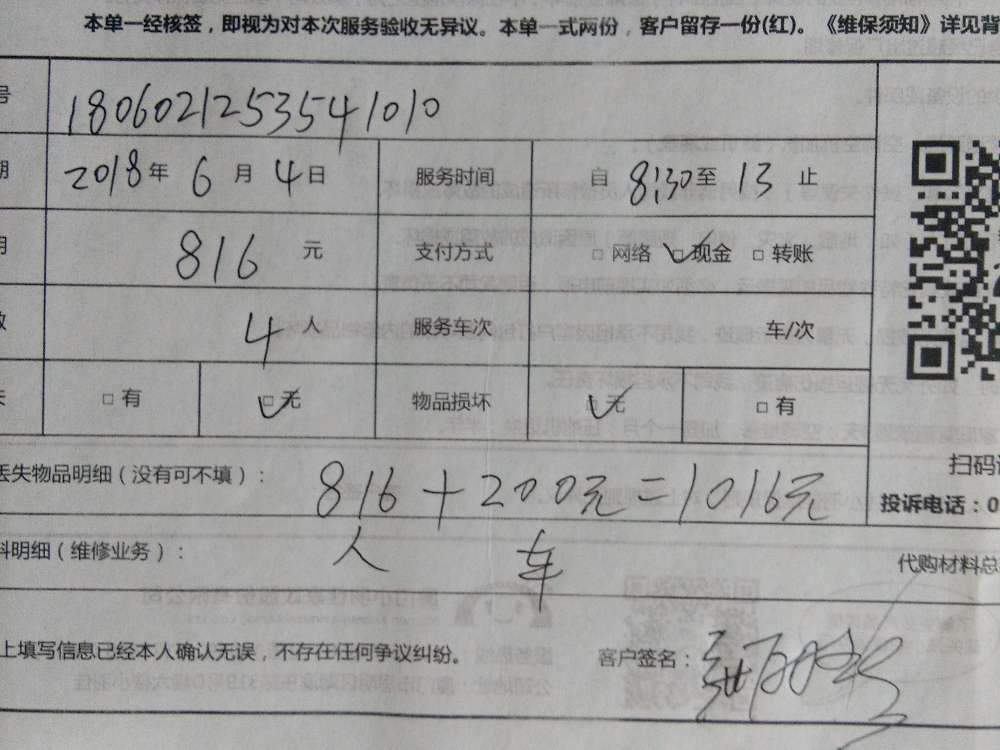 本单一经核签，即视为对本次服务验收无异议。本单一式两份，客户留存一份(红)。《维保须知》详见背
号 1806021253541010
期 2018年 6 月 4 日 服务时间 自 8:30 至 13 止
816 元 支付方式 □ 网络 □ 现金 □ 转账
数 4 人 服务车次 车/次
失 □ 有 □ 无 物品损坏 □ 无 □ 有
丢失物品明细（没有可不填）： 816 + 200元 = 1016元
人 车
扫码
投诉电话：0
料明细（维修业务）：
代购材料总
上填写信息已经本人确认无误，不存在任何争议纠纷。 客户签名：